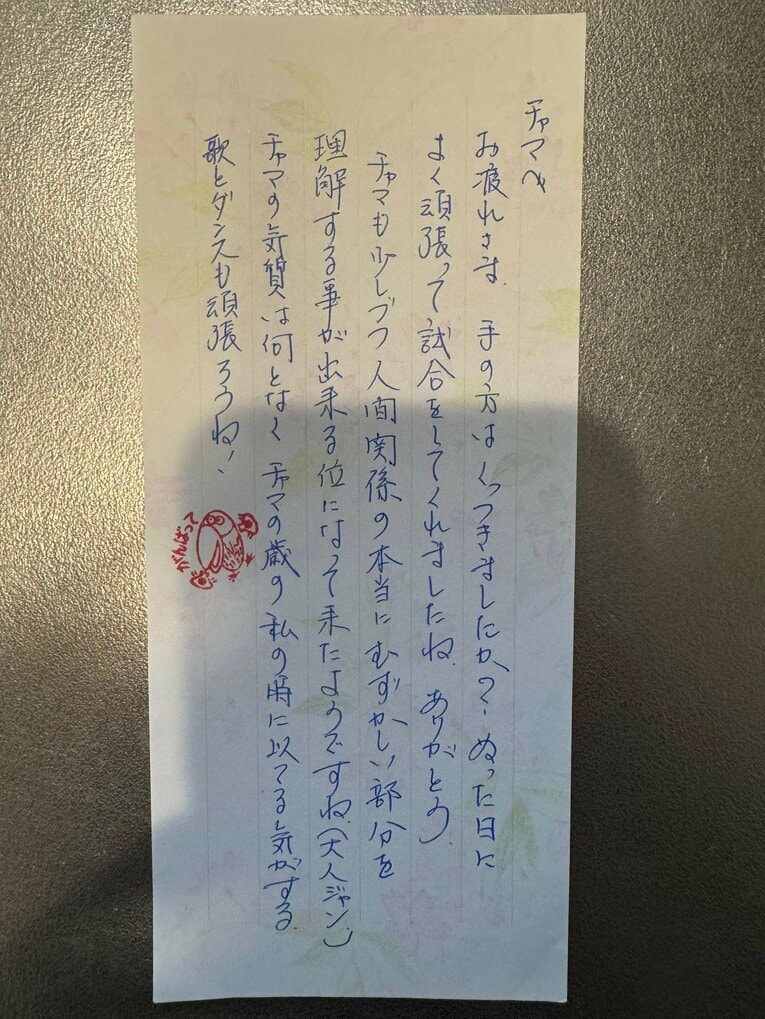 チャマへ
お疲れさま. 手の方はくっつきましたか？. ぬった日に
よく頑張って試合をしてくれましたね. ありがとう.
チャマも少しづつ人間関係の本当にむずかしい部分を
理解する事が出来る位になって来たようですね.(大人ジャン)
チャマの気質は何となくチャマの歳の私の時に似てる気がする.
歌とダンスも頑張ろうね!
がんばって